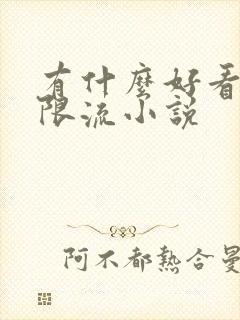 有什麼好看
限流小說
阿不都熱合曼